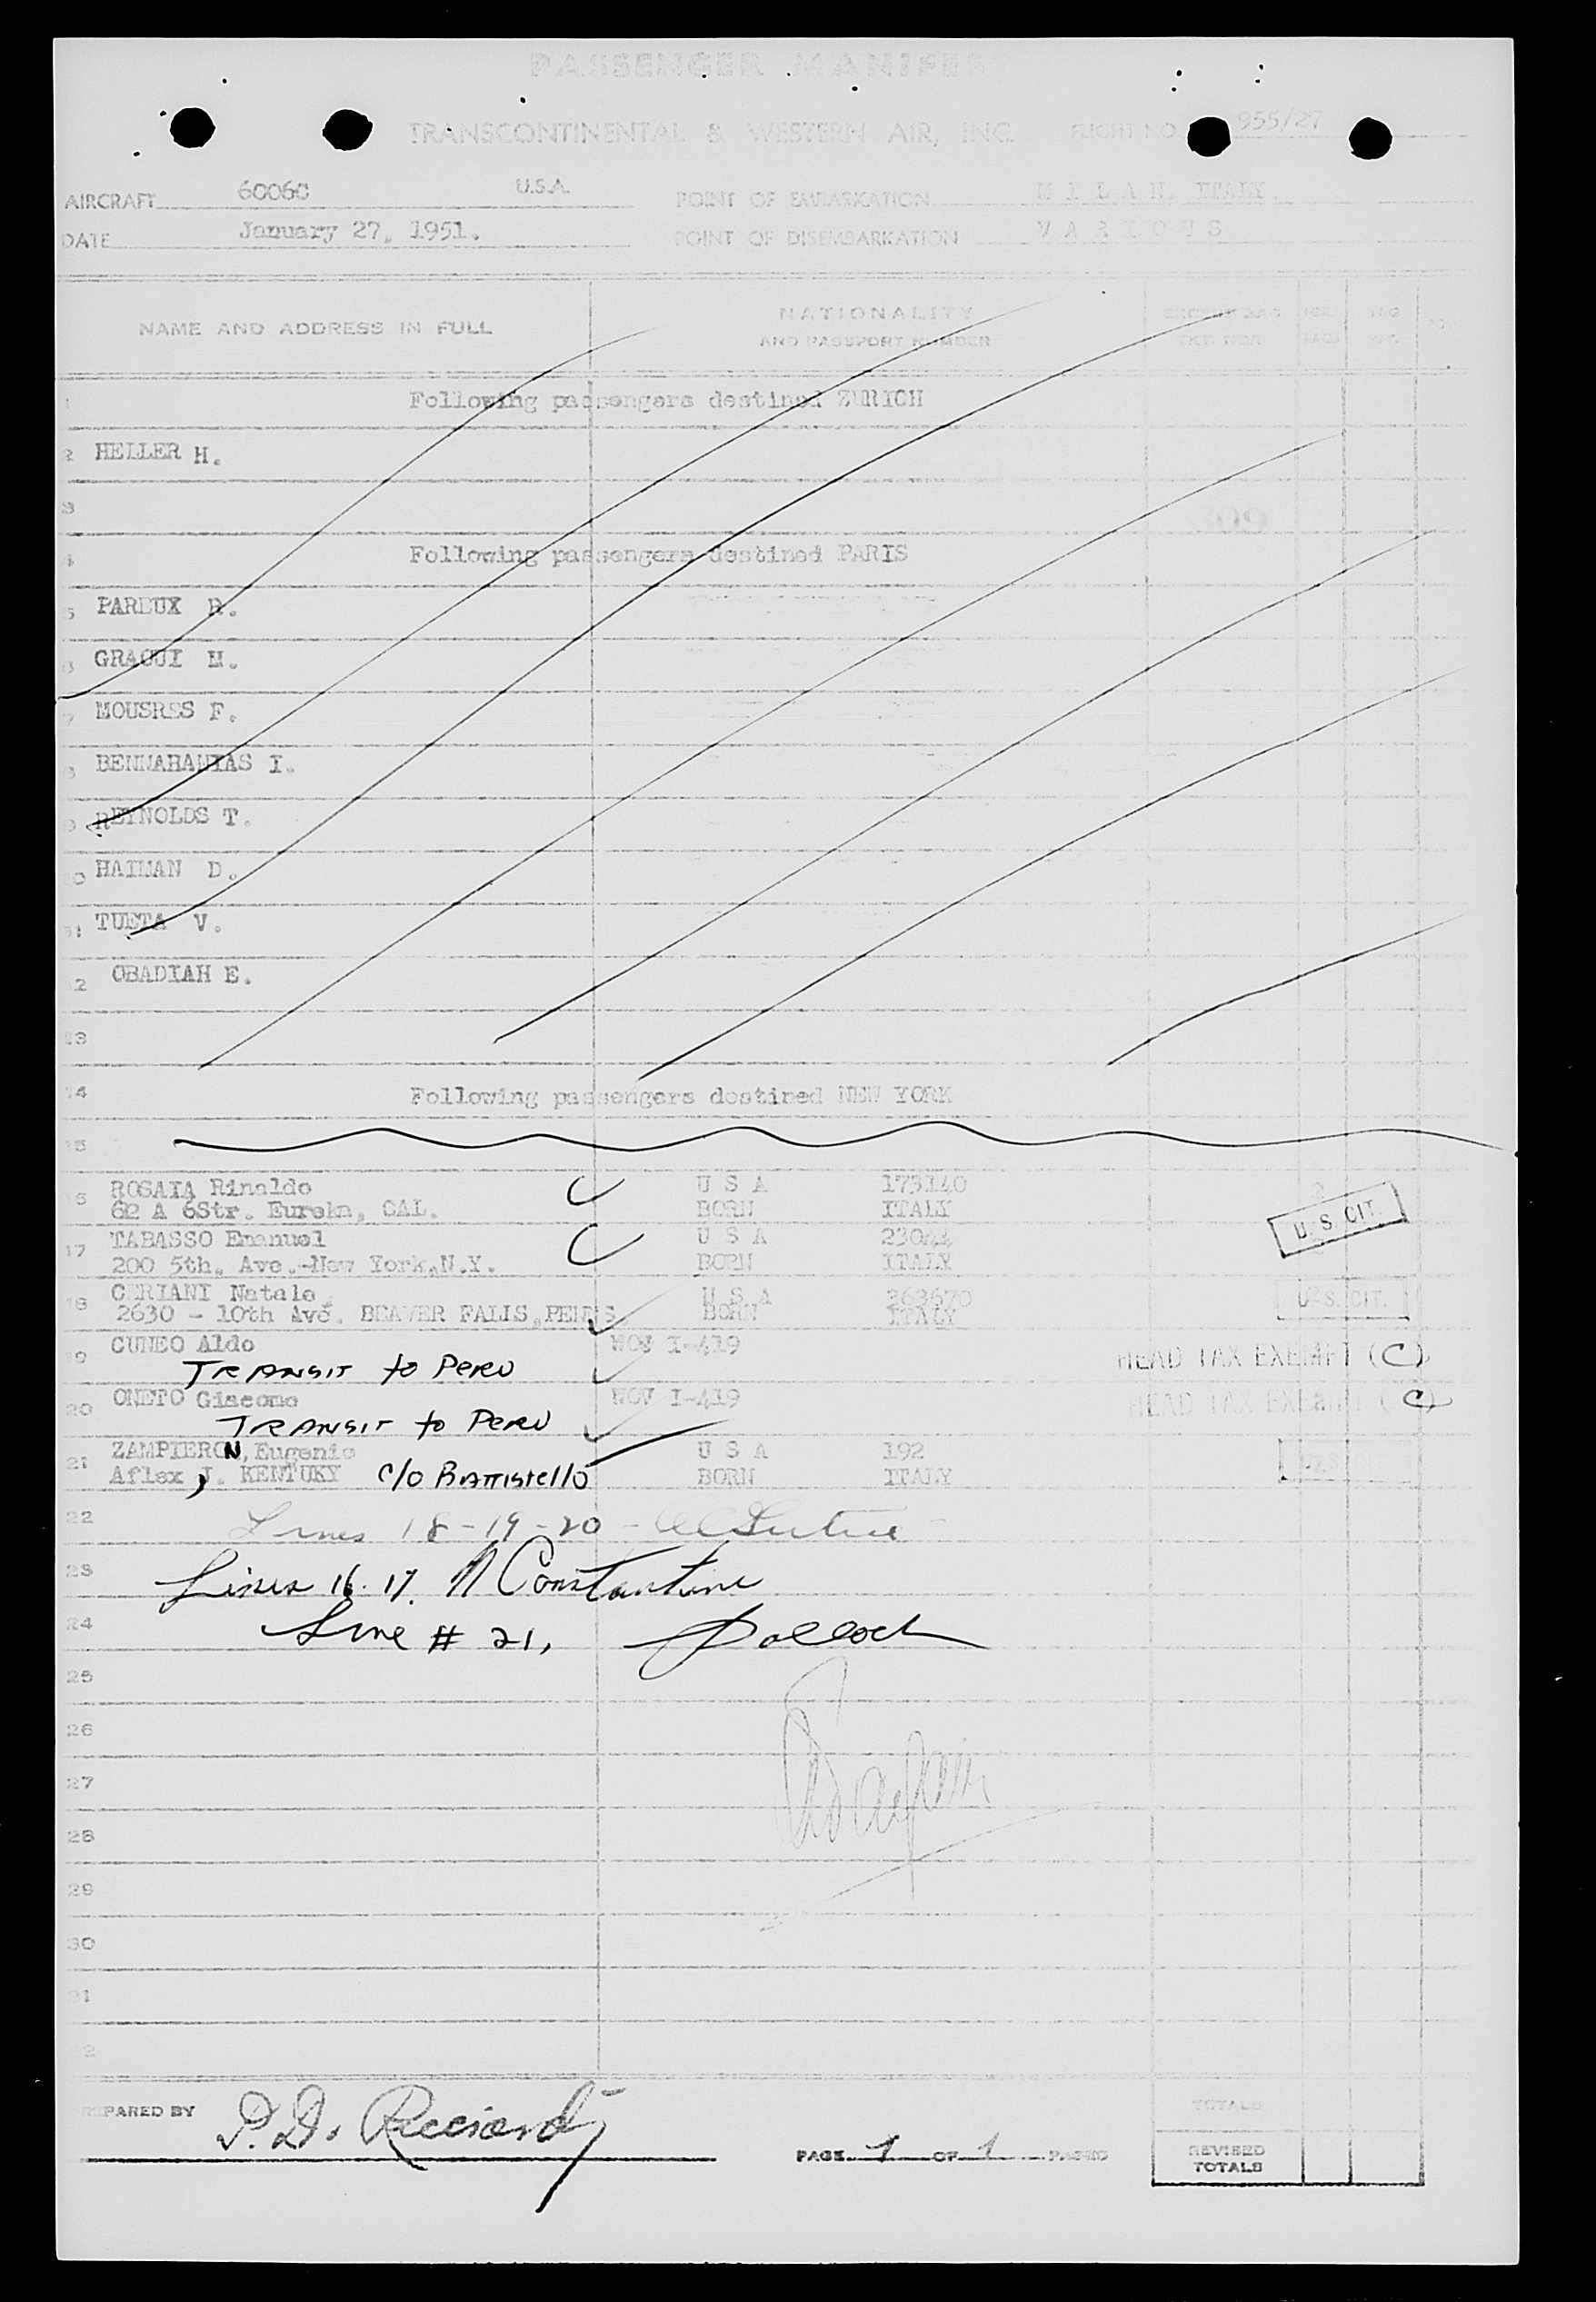 PASSENGER MANIFES
TRANSCONTINENTAL & WESTERN AIR, INC. FLIGHT NO. 955/27
AIRCRAFT 60060 U.S.A. POINT OF EMBARKATION M I L A N, ITALY.
DATE January 27, 1951. POINT OF DISEMBARKATION V A R I O U S
NAME AND ADDRESS IN FULL
NATIONALITY
AND PASSPORT NUMBER
1 Following passengers destined ZURICH
2 HELLER H.
3
4 Following passengers destined PARIS
5 PARDUX R.
6 GRAOUI M.
7 MOUSRES F.
8 BENNAHAMIAS I.
9 REYNOLDS T.
10 HAIMAN D.
11 TUETA V.
12 OBADIAH E.
13
14 Following passengers destined NEW YORK
15
16 ROSAIA Rinaldo U S A 173140
612 A 6Str. Eureka, CAL. BORN ITALY
U. S. CIT.
17 TABASSO Emanuel U S A 23044
200 5th. Ave.-New York,N.Y. BORN ITALY
18 CERIANI Natale U S A 363670
2630 - 10th Ave. BEAVER FALLS,PENNS BORN ITALY
U. S. CIT.
19 CUNEO Aldo NOV I-419
TRANSIT to PERU
HEAD TAX EXEMPT (C)
20 ONETO Giacomo NOV I-419
TRANSIT to PERU
HEAD TAX EXEMPT (C)
21 ZAMPIERON, Eugenio U S A 192
Aflex, J. KENTUKY c/o BATTISTELLO BORN ITALY
U.S.
22 Lines 18-19-20 -
23 Lines 16. 17. N Constantine
24 Line # 21, Pollock
25
26
27
28
29
30
31
32
PREPARED BY P. D. Ricciardy
PAGE 1 OF 1 PAGES
TOTALS
REVISED
TOTALS